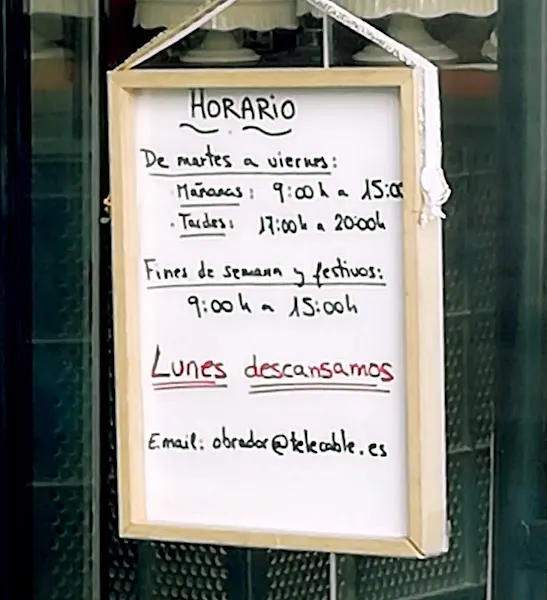 HORARIO
De martes a viernes:
· Mañanas: 9:00h a 15:00
· Tardes: 17:00h a 20:00h
Fines de semana y festivos:
9:00h a 15:00h
Lunes descansamos
Email: obrador@telecable.es